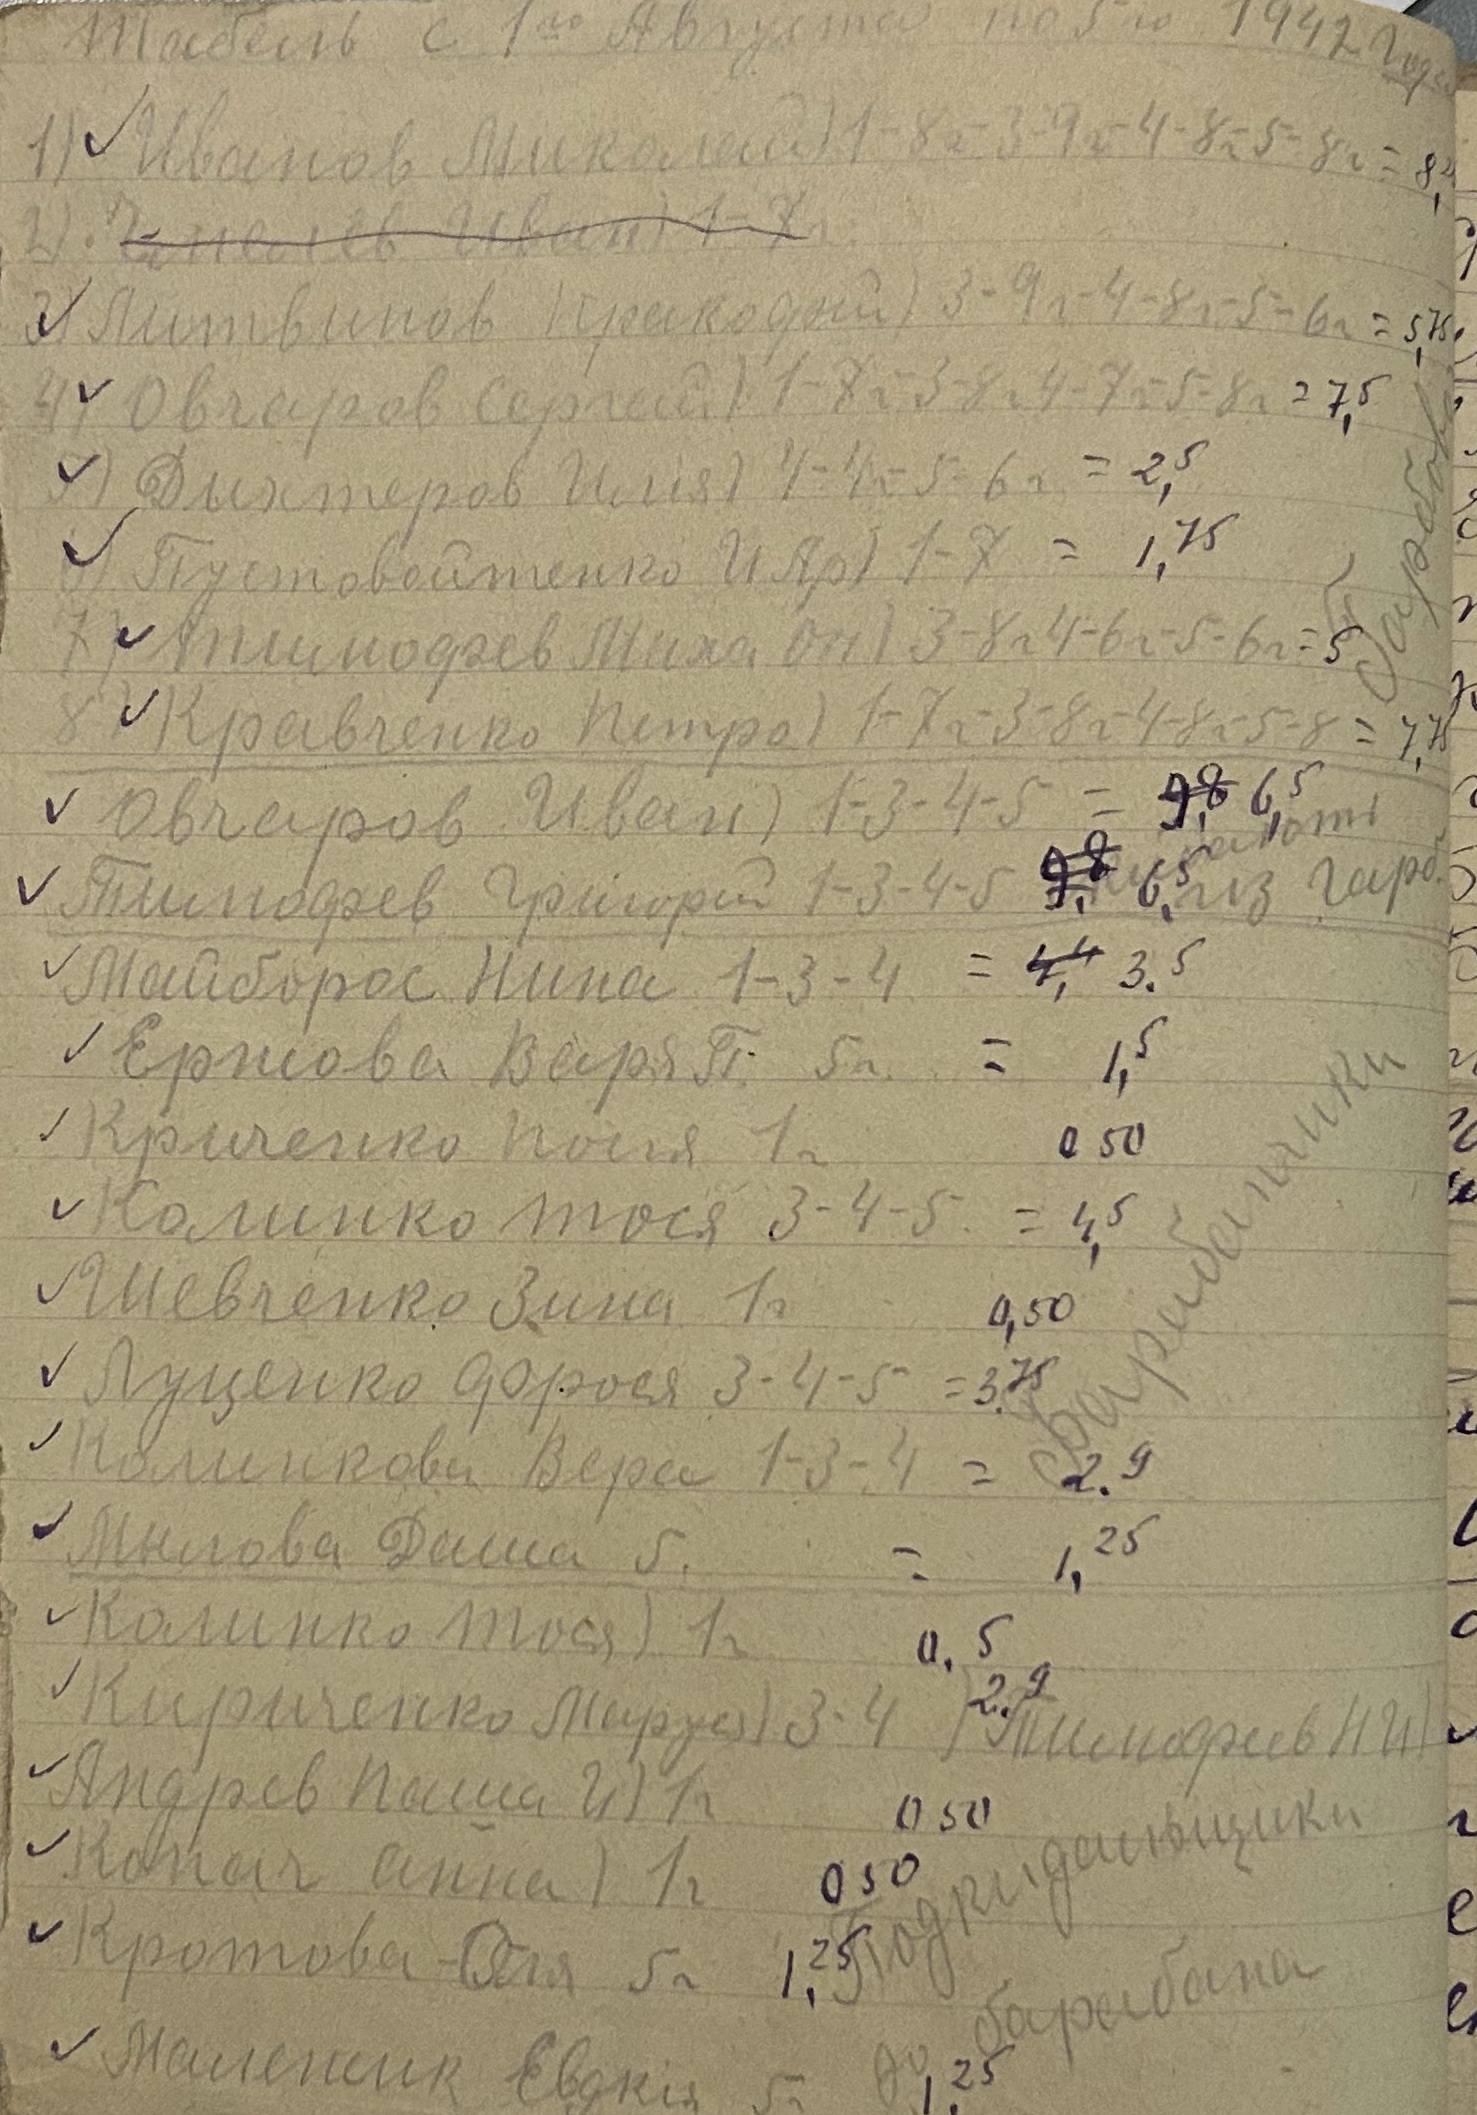 Табель с 1го Августа по 5го 1942 года
1) ✓ Иванов Миколай) 1-8г-3-9г-4-8г-5-8г = 8,
2) Иван) 1-7г
3) ✓ Литвинов 3-9г-4-8г-5-6г = 5,75
4) ✓ Овчаров Сергей) 1-7г-3-8г4-7г-5-8г = 7,5
5) ✓ Дихтеров Илия) 4-4г-5-6г = 2,5
6) ✓ Пустовойтенко И Яр) 1-7 = 1,75
7) ✓ Тимофев Миха Он) 3-8г4-6г-5-6г = 5
8) ✓ Кравченко Петро) 1-7г-3-8г-4-8г5-8 = 7,75
✓ Овчаров Иван) 1-3-4-5 = 9,8 6,5
✓ Тимофев Григорий 1-3-4-5 9,8 6,5 из гарб.
✓ Майборос Нина 1-3-4 = 4,4 3.5
✓ Ершова Варя П. 5г = 1,5
✓ Криченко Поля 1г 0 50
✓ Калинко Тося 3-4-5 = 4,5
✓ Шевченко Зина 1г 0,50
✓ Луценко Фрося 3-4-5 = 3.75
✓ Калинкова Вера 1-3-4 = 2.9
✓ Мылова Даша 5. = 1,25
✓ Калинко Тося) 1г 0.5
✓ Кириченко Маруся) 3-4 2.9 (Тимофев Н И)
✓ Андрев Паша И) 1г 0 50
✓ Копач Анна) 1г 0 50
✓ Кротова Оля 5г 1,25
✓ Маленик Евдкия 5г 1,25
барабанчики
Подкидальщики
до барабана